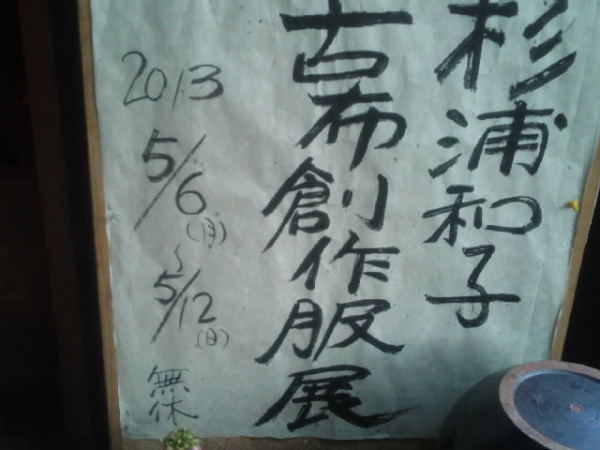 杉浦和子
古布創作服展
2013
5/6
(月)
〜
5/12
(日)
無休